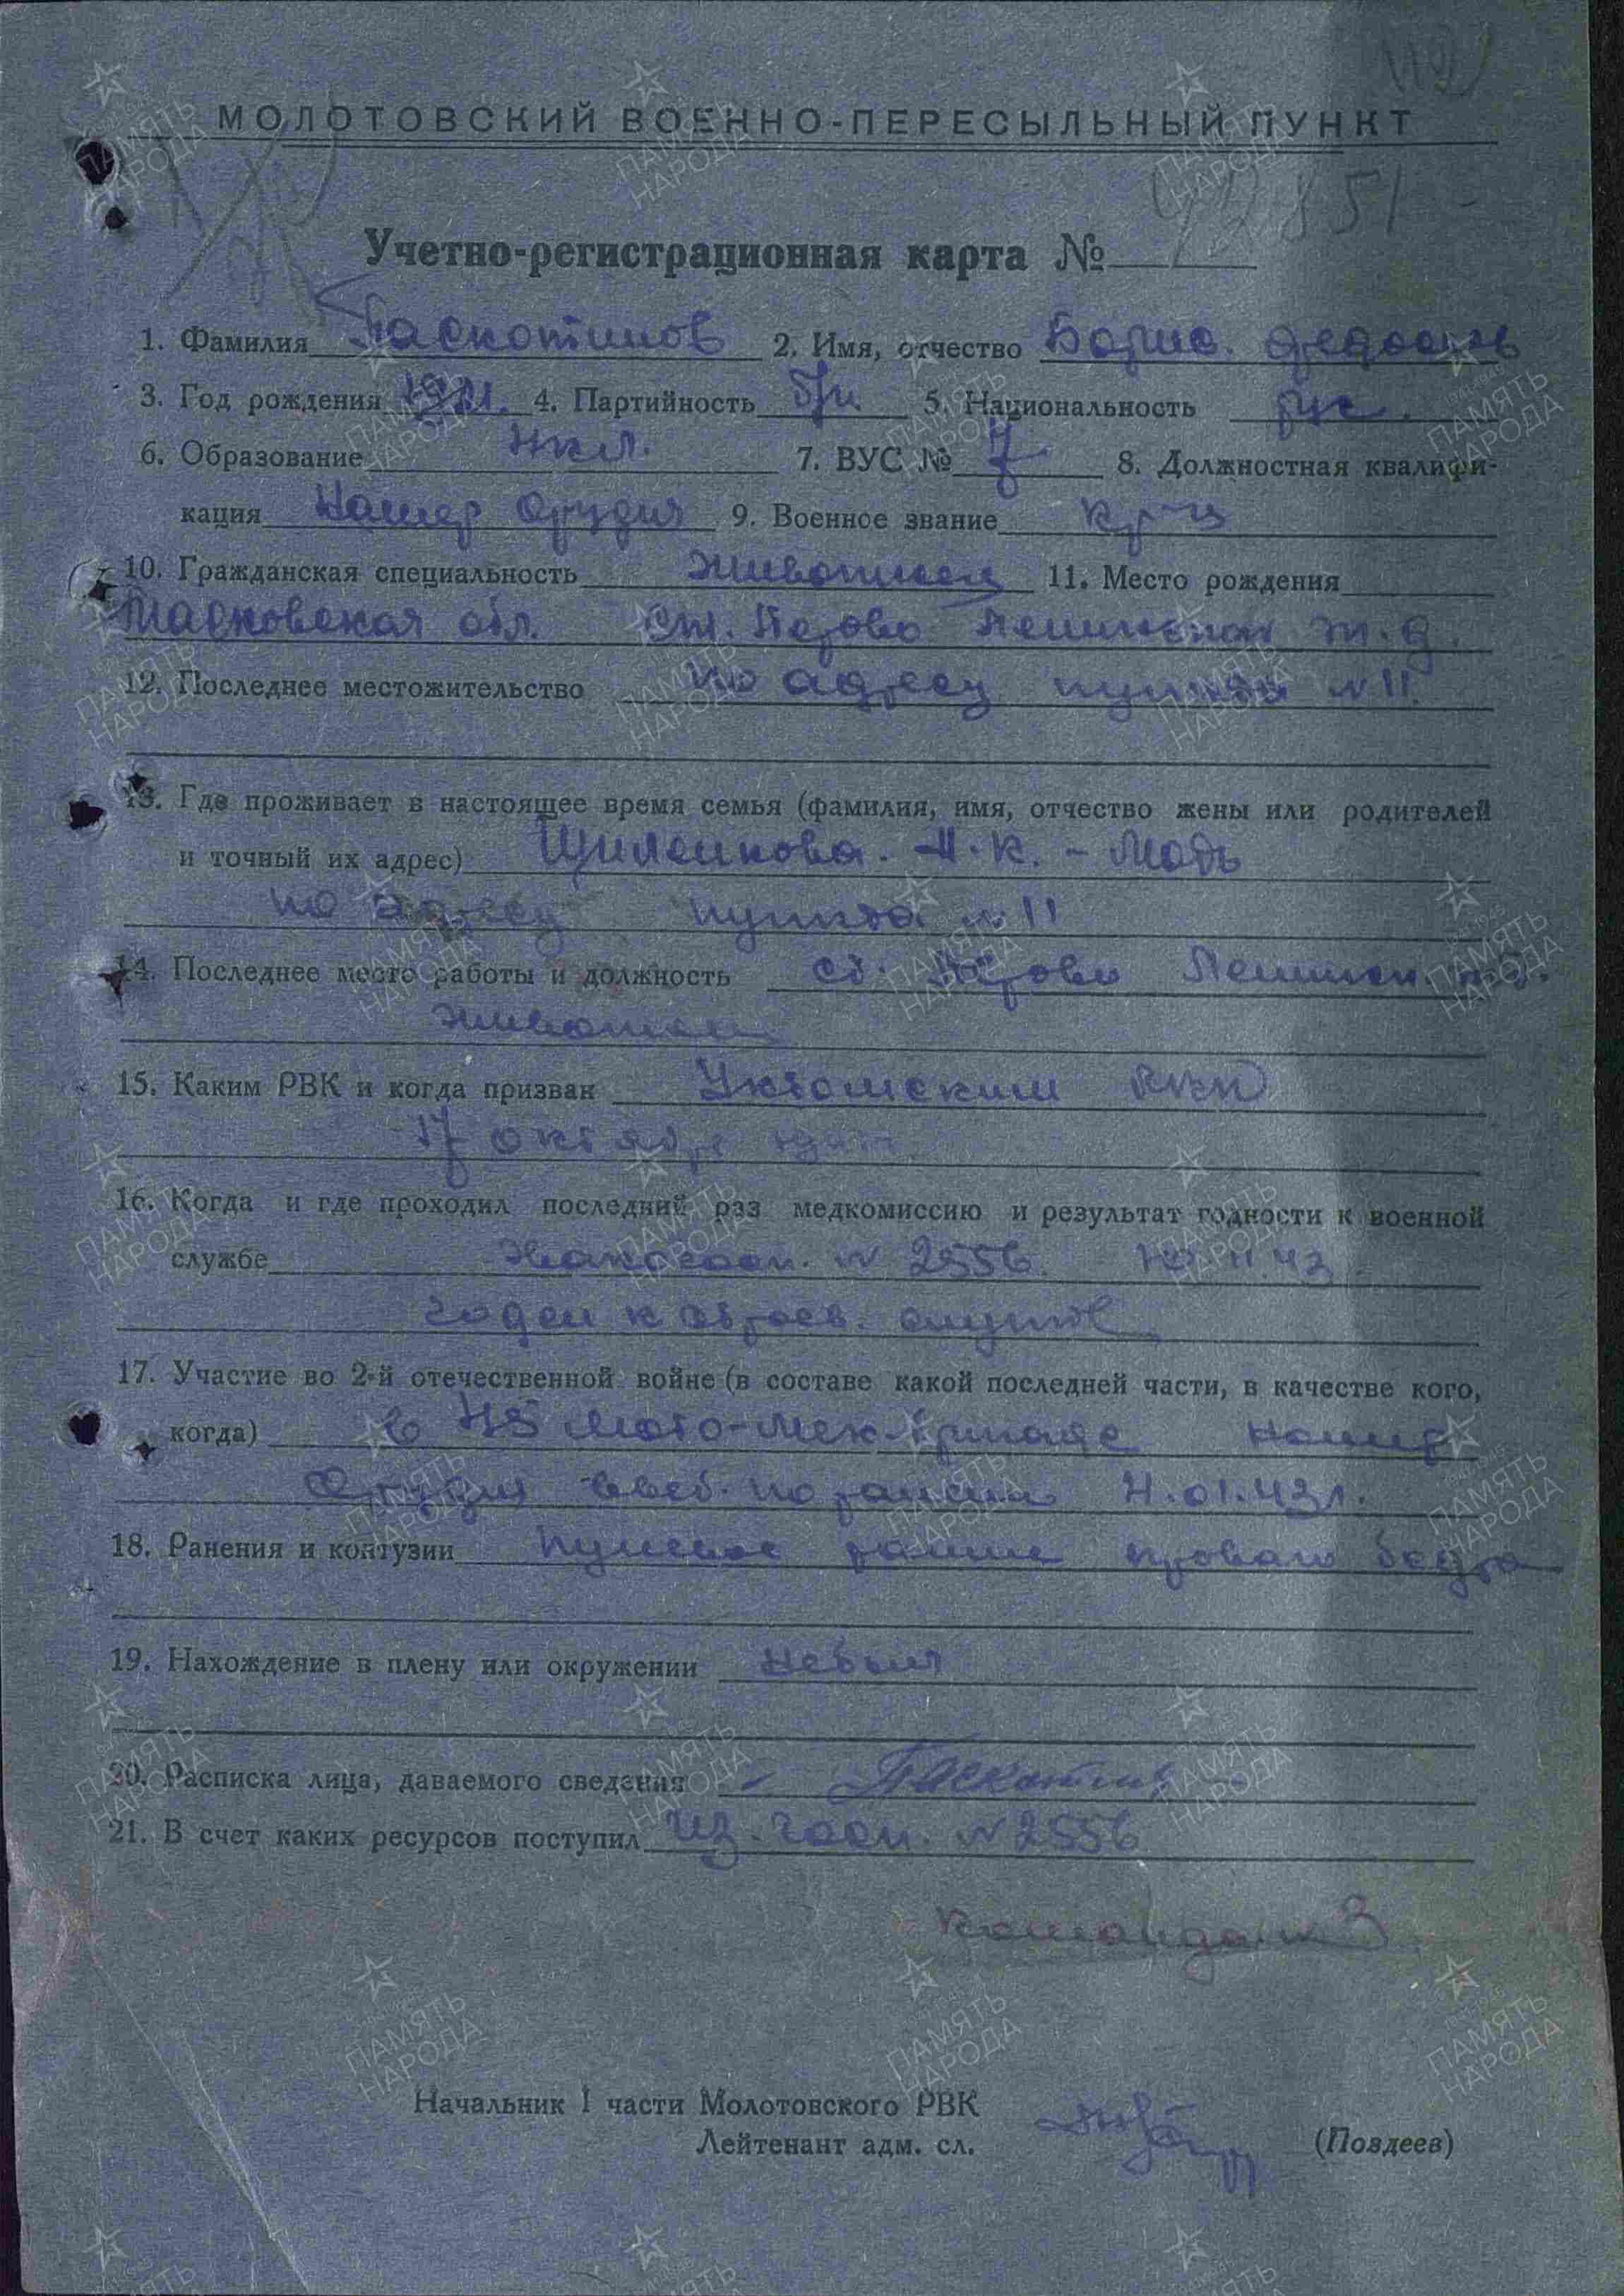 МОЛОТОВСКИЙ ВОЕННО-ПЕРЕСЫЛЬНЫЙ ПУНКТ
Учетно-регистрационная карта №
1. Фамилия Паскотинов 2. Имя, отчество Борис
3. Год рождения 1921. 4. Партийность б/п. 5. Национальность рус.
6. Образование 4 кл. 7. ВУС № 7 8. Должностная квалифи-
кация Номер орудия 9. Военное звание кр-ц
10. Гражданская специальность живописец 11. Место рождения
Московская обл. ст. Перово Ленинской ж.д.
12. Последнее местожительство по адресу пункта №11.
13. Где проживает в настоящее время семья (фамилия, имя, отчество жены или родителей
и точный их адрес) К. - Мать
по адресу пункта №11
14. Последнее место работы и должность ст. Перово Ленинск. ж.д.
живописец
15. Каким РВК и когда призван Ухтомским РВК
17 октябр
16. Когда и где проходил последний раз медкомиссию и результат годности к военной
службе Эвакогосп. № 2556. 11.43.
годен к строев. службе
17. Участие во 2-й отечественной войне (в составе какой последней части, в качестве кого,
когда) в 45 мото-мех-бригаде номер
Орудия выб. по ранению 01.43г.
18. Ранения и контузии пулевое ранение правого бедра
19. Нахождение в плену или окружении не был
20. Расписка лица, даваемого сведения
21. В счет каких ресурсов поступил Из. госп. №2556
Команда № 3
Начальник I части Молотовского РВК
Лейтенант адм. сл. (Поздеев)
ПАМЯТЬ НАРОДА